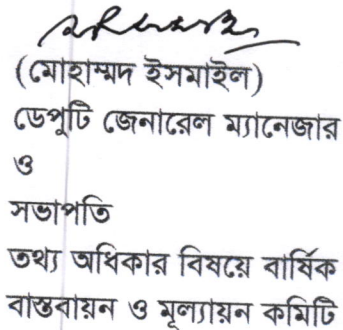 (মোহাম্মদ ইসমাইল)
ডেপুটি জেনারেল ম্যানেজার
ও
সভাপতি
তথ্য অধিকার বিষয়ে বার্ষিক
বাস্তবায়ন ও মূল্যায়ন কমিটি